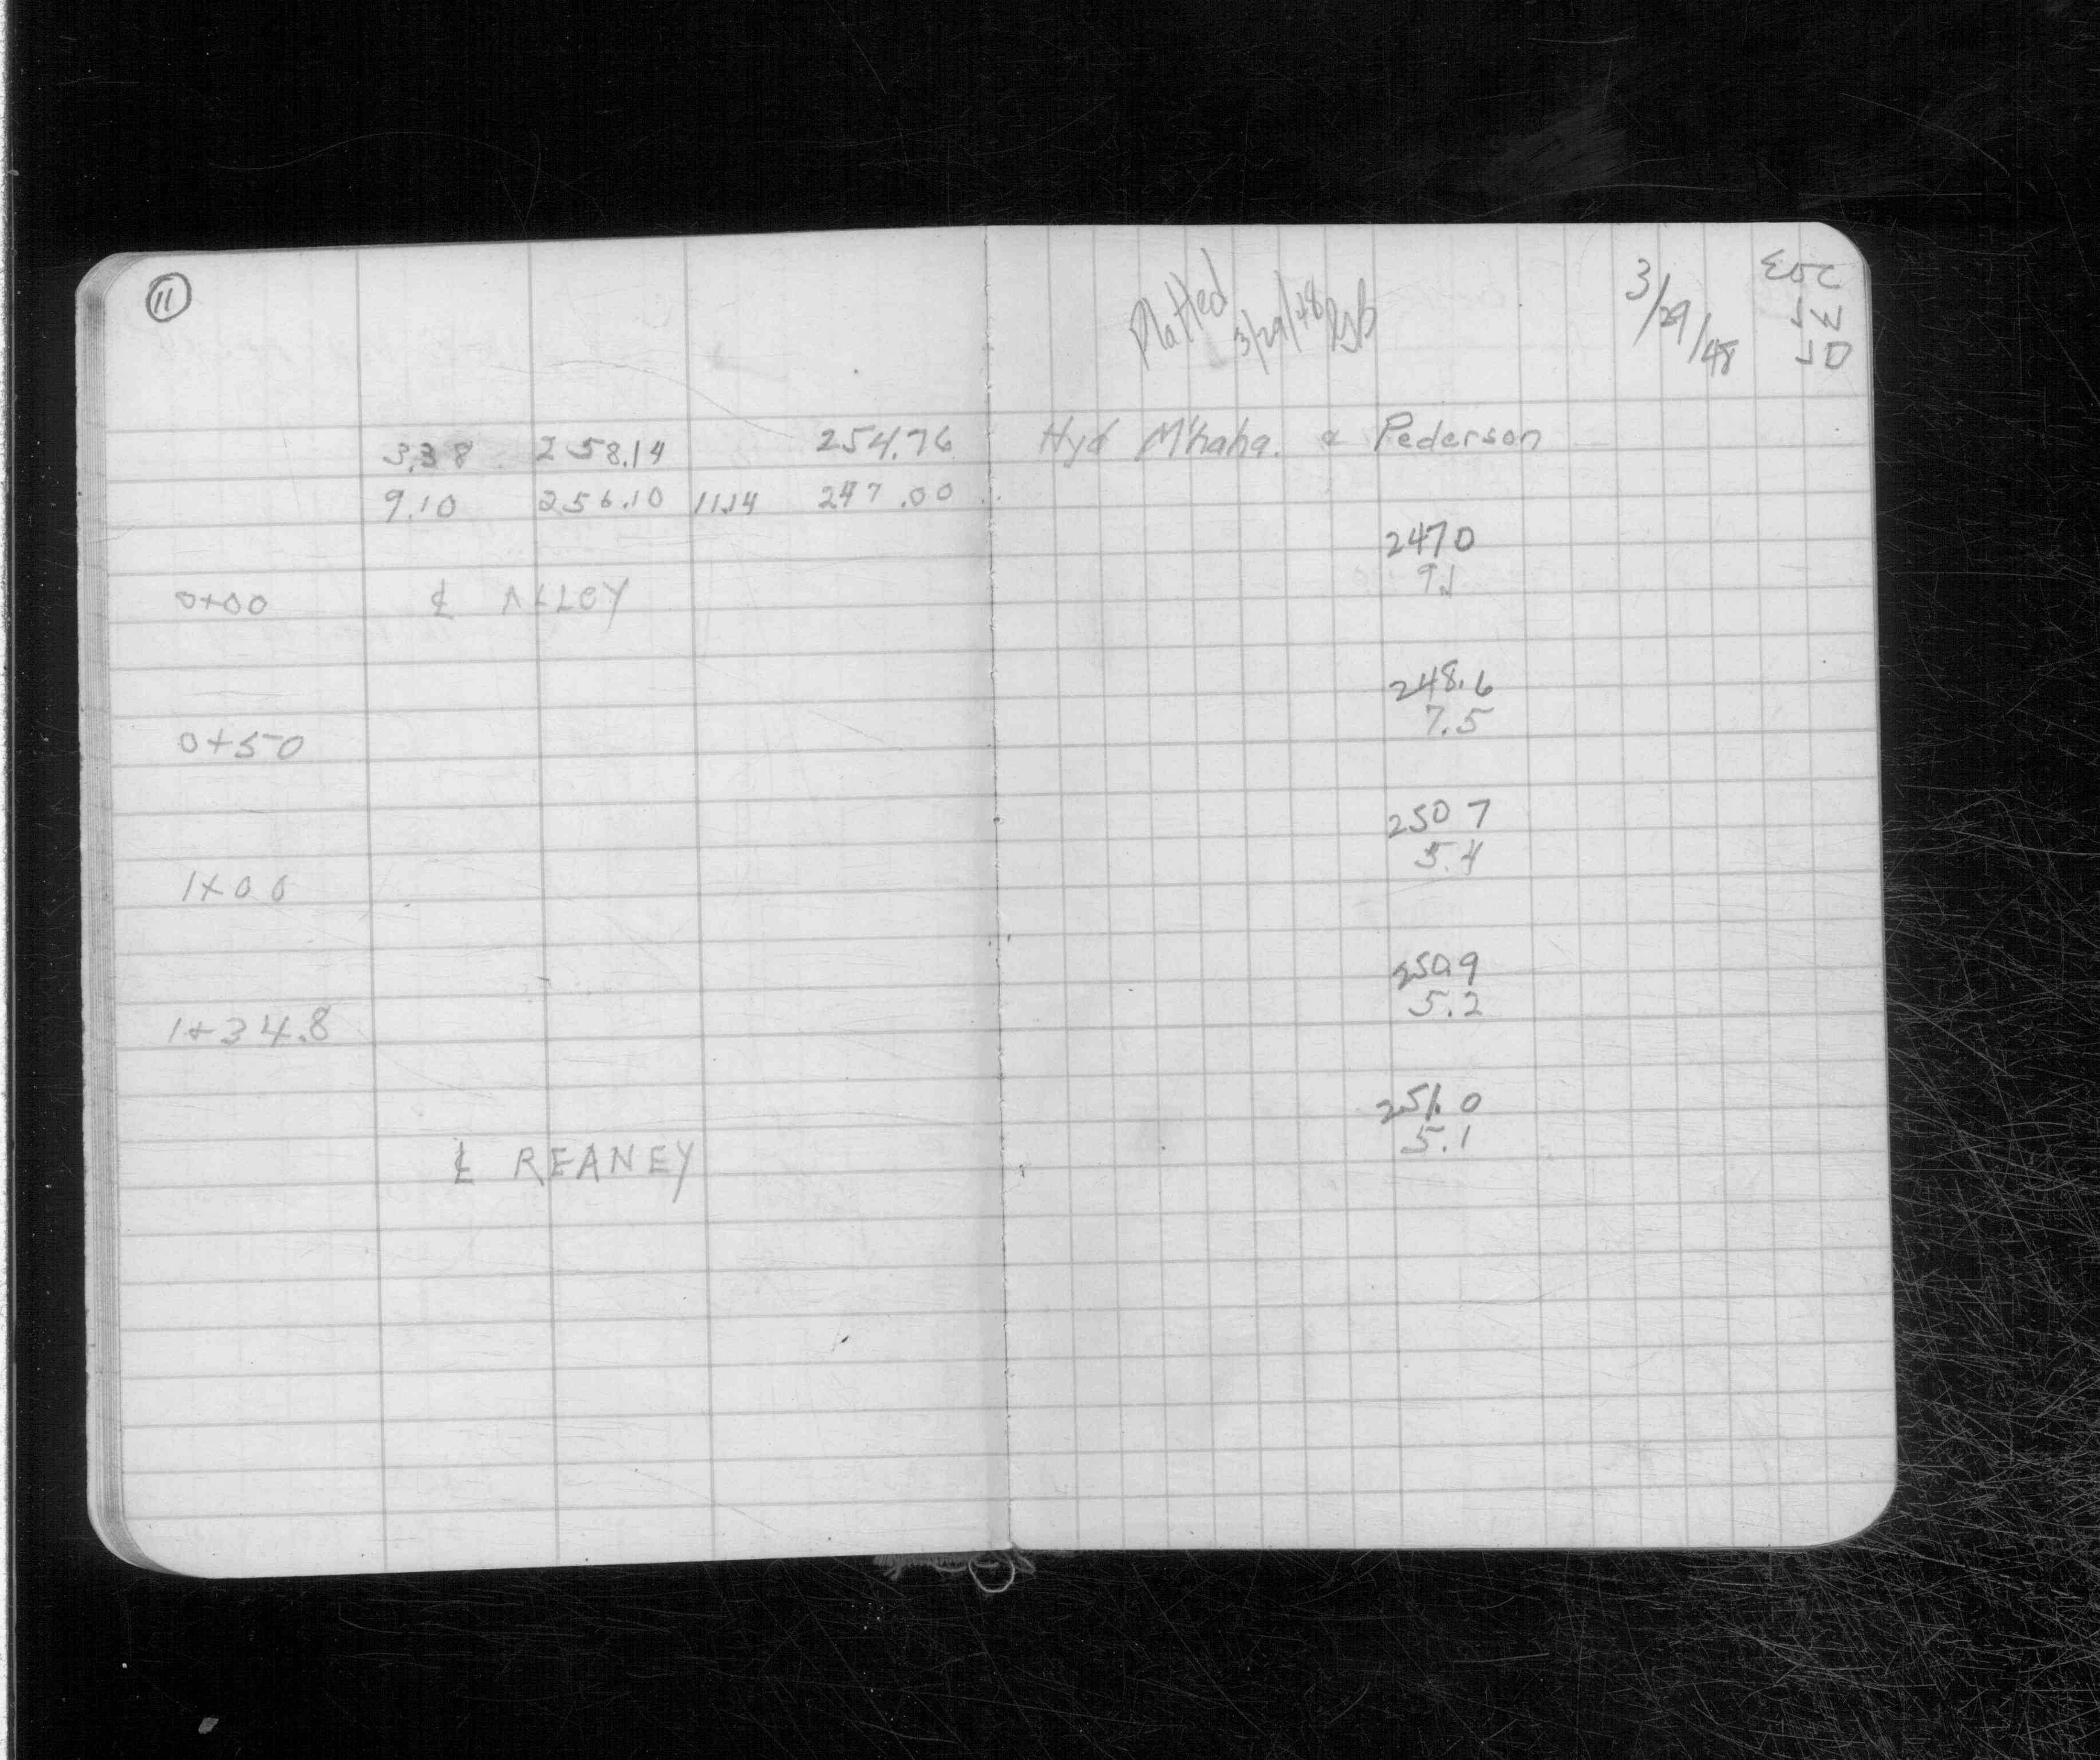 11
Platted
3/29/48
3/29/48
EOC
JW
JD
3.38 258.14 254.76 Hyd M'haha. & Pederson
9.10 256.10 11.14 247.00
2470
9.1
0+00 ℄ ALLEY
248.6
7.5
0+50
250 7
5.4
1+00
250.9
5.2
1+34.8
251.0
5.1
℄ REANEY